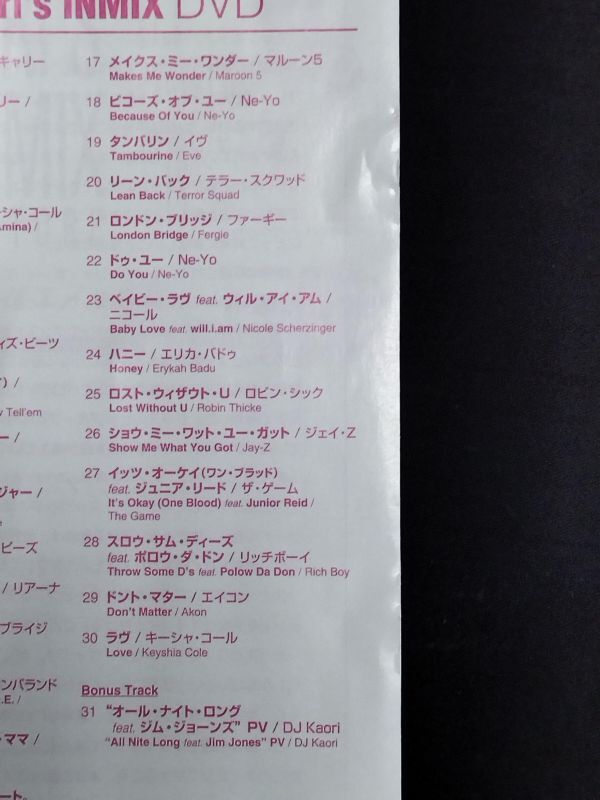 ri's INMIX DVD
キャリー
リー /
ーシャ・コール
Amina) /
ィズ・ビーツ
) /
y Tell'em
ー /
ジャー /
ビーズ
/ リアーナ
ブライジ
ンバランド
.E. /
・ママ /
ート。
17 メイクス・ミー・ワンダー / マルーン5
Makes Me Wonder / Maroon 5
18 ビコーズ・オブ・ユー / Ne-Yo
Because Of You / Ne-Yo
19 タンバリン / イヴ
Tambourine / Eve
20 リーン・バック / テラー・スクワッド
Lean Back / Terror Squad
21 ロンドン・ブリッジ / ファーギー
London Bridge / Fergie
22 ドゥ・ユー / Ne-Yo
Do You / Ne-Yo
23 ベイビー・ラヴ feat. ウィル・アイ・アム /
ニコール
Baby Love feat. will.i.am / Nicole Scherzinger
24 ハニー / エリカ・バドゥ
Honey / Erykah Badu
25 ロスト・ウィザウト・U / ロビン・シック
Lost Without U / Robin Thicke
26 ショウ・ミー・ワット・ユー・ガット / ジェイ・Z
Show Me What You Got / Jay-Z
27 イッツ・オーケイ(ワン・ブラッド)
feat. ジュニア・リード / ザ・ゲーム
It's Okay (One Blood) feat. Junior Reid /
The Game
28 スロウ・サム・ディーズ
feat. ポロウ・ダ・ドン / リッチボーイ
Throw Some D's feat. Polow Da Don / Rich Boy
29 ドント・マター / エイコン
Don't Matter / Akon
30 ラヴ / キーシャ・コール
Love / Keyshia Cole
Bonus Track
31 "オール・ナイト・ロング
feat. ジム・ジョーンズ" PV / DJ Kaori
"All Nite Long feat. Jim Jones" PV / DJ Kaori